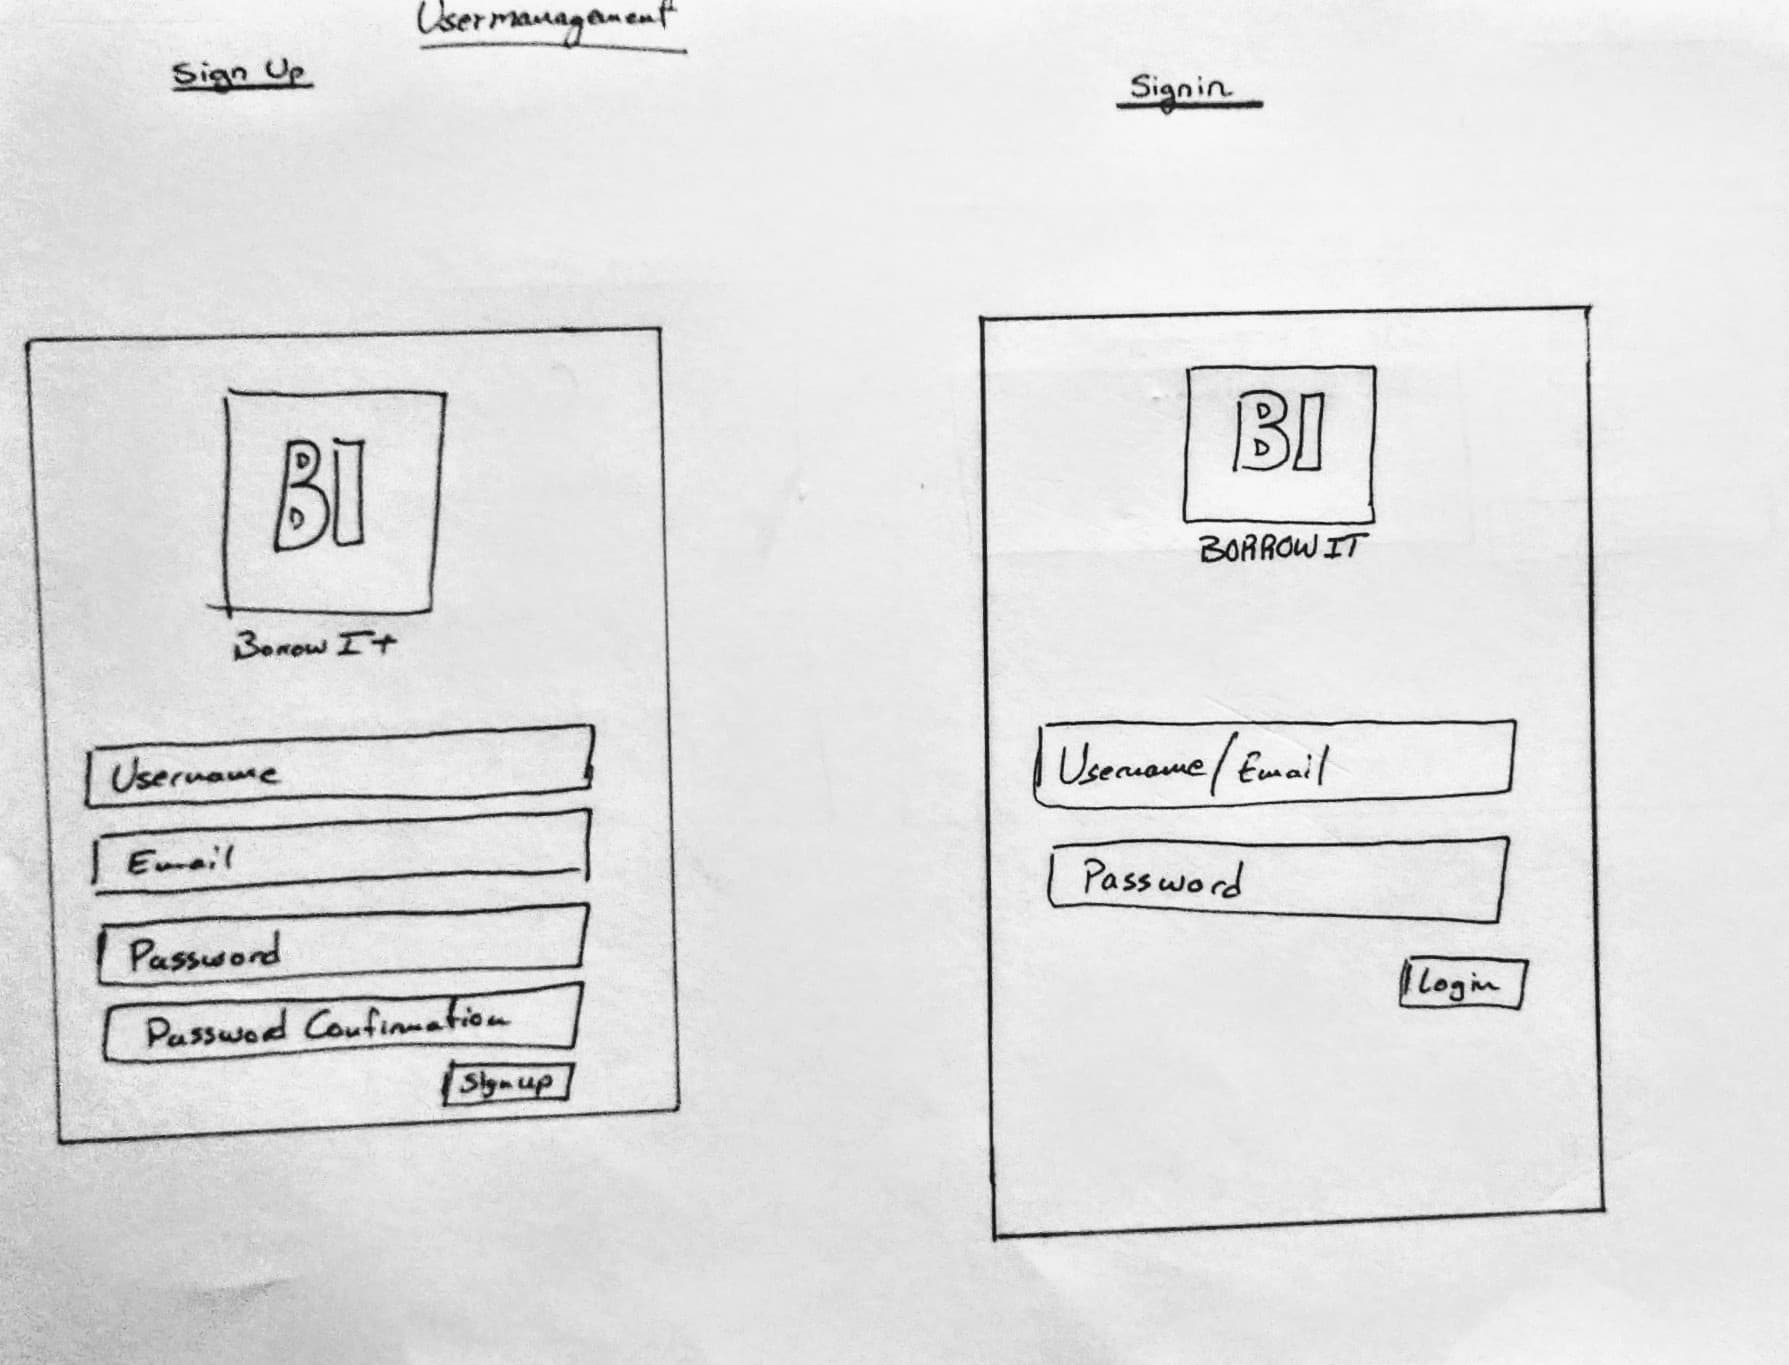 Usermanagement
Sign Up
BI
Borrow It
Username
Email
Password
Password Confirmation
Sign up
Signin
BI
BORROW IT
Username/Email
Password
Login